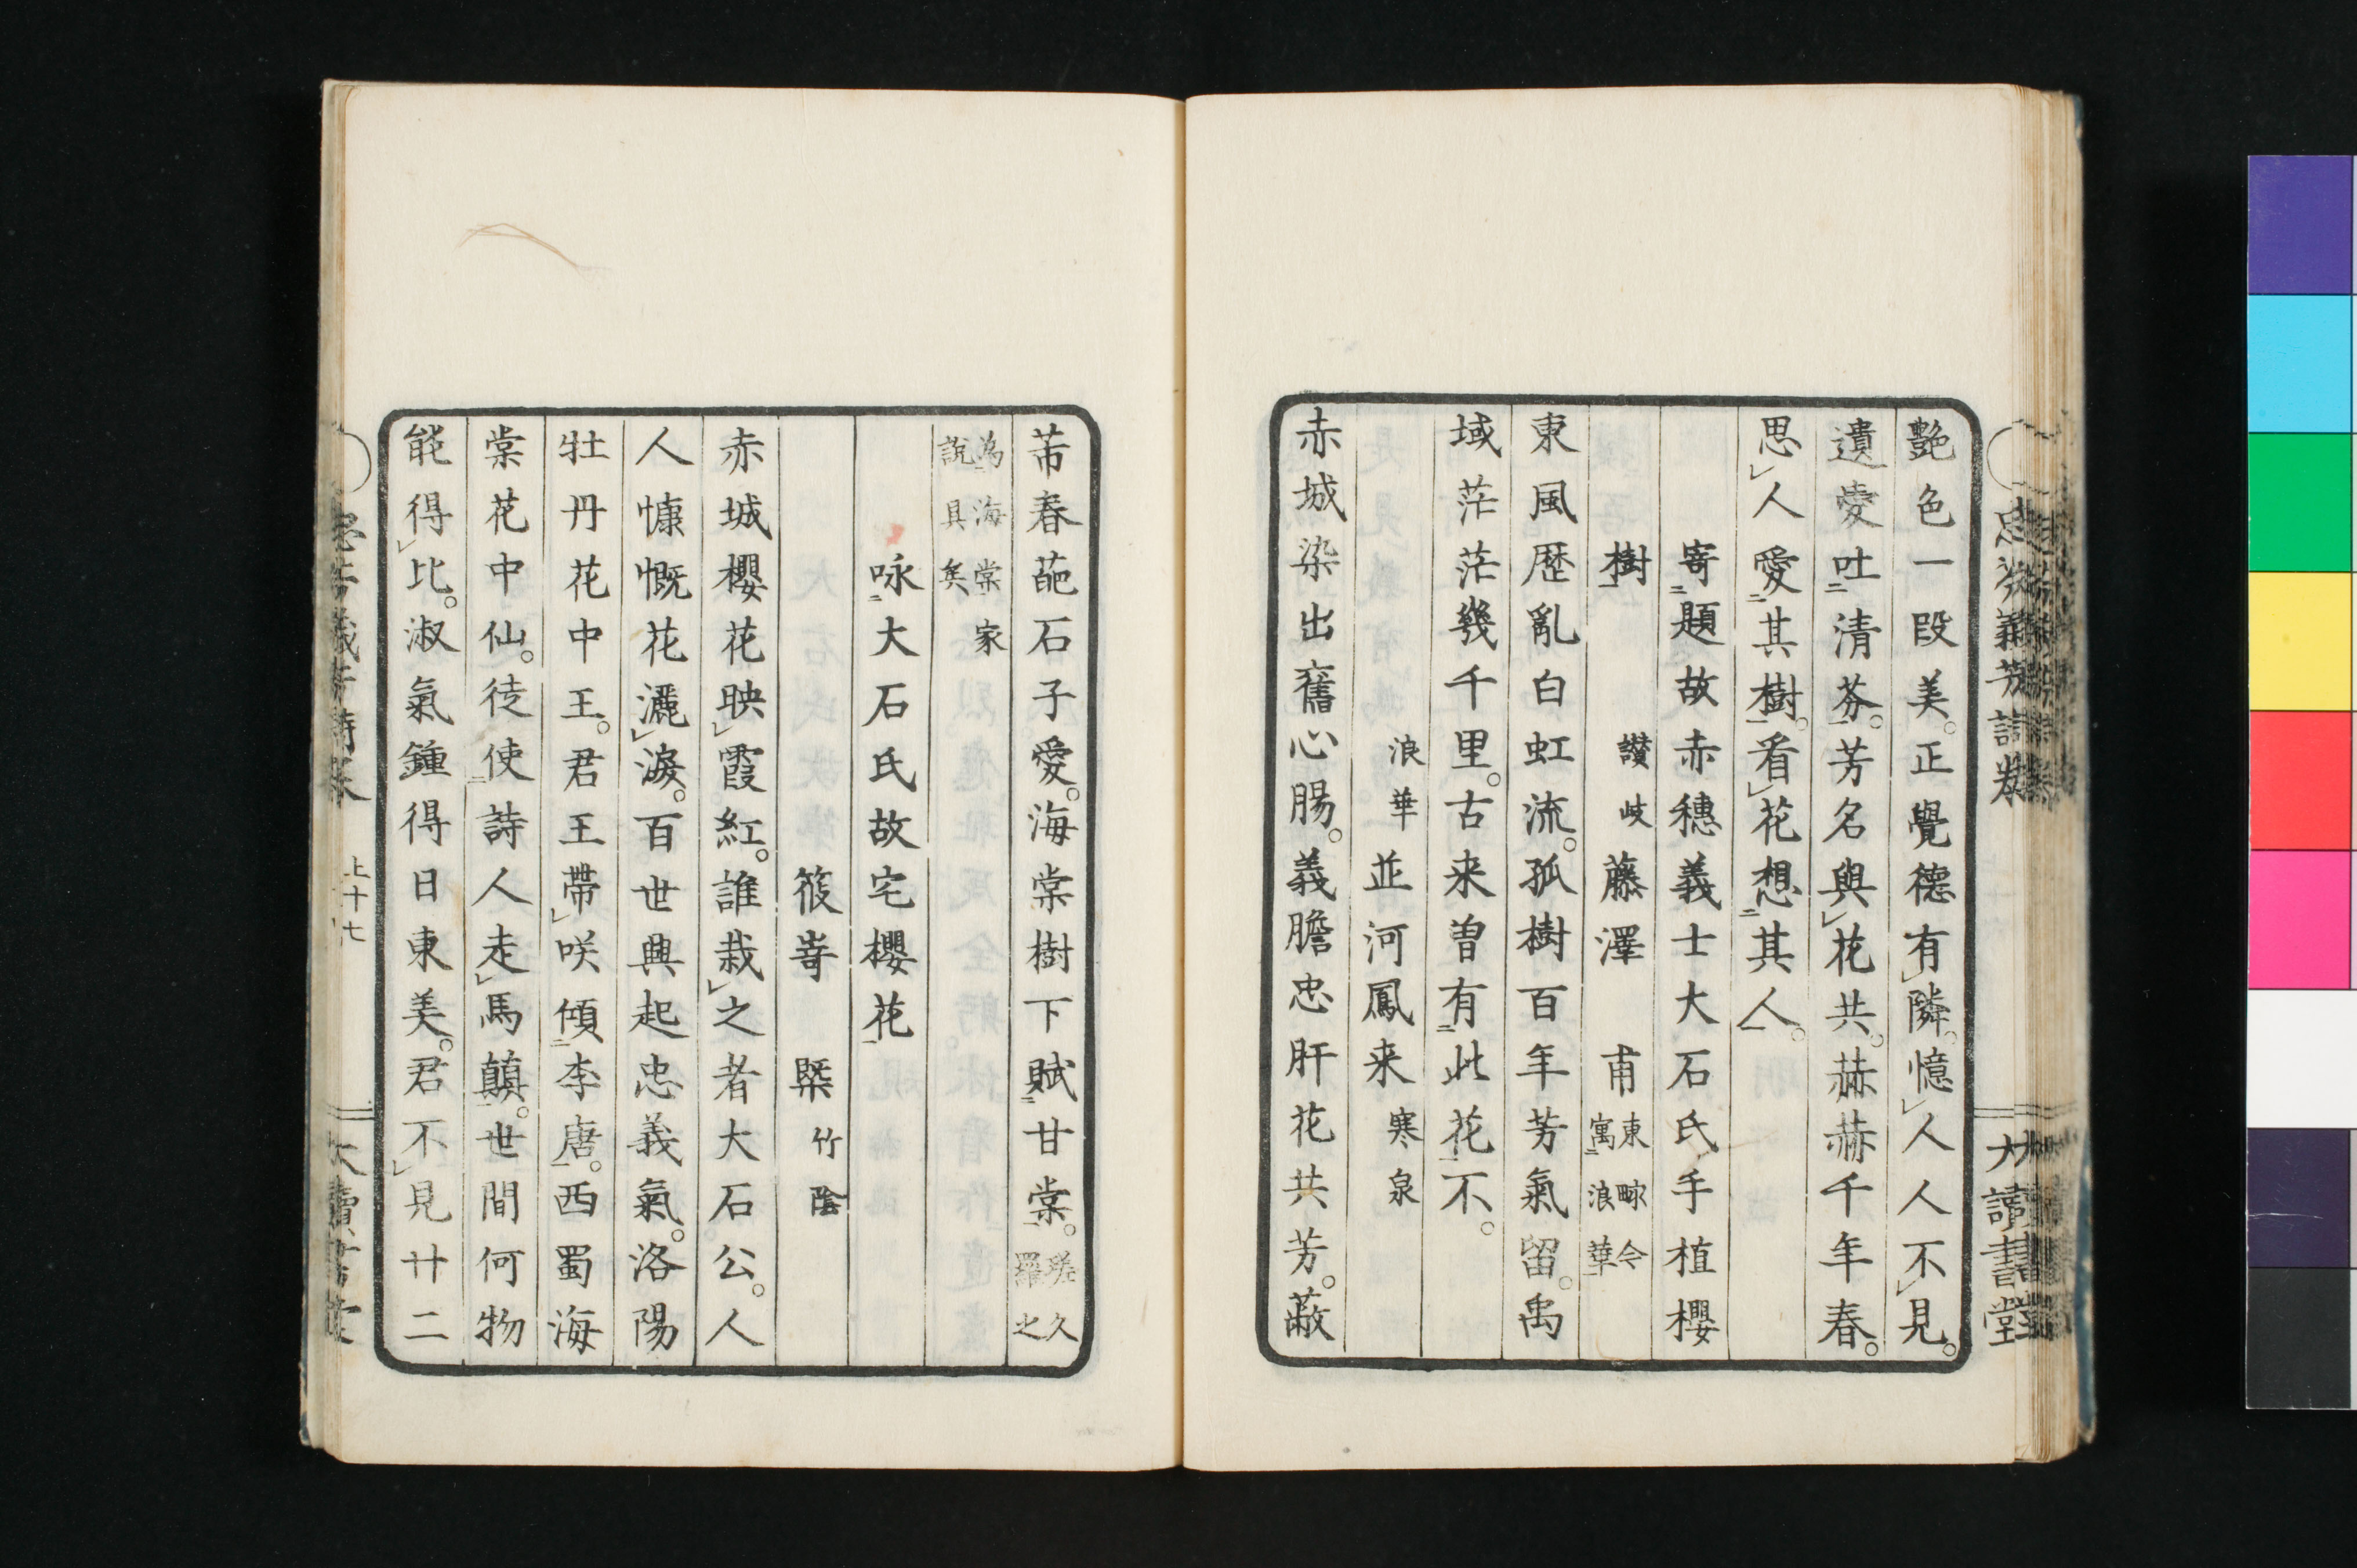 艶色一段美。正覺德有隣。憶人人不見。
遺愛吐清芬。芳名與花共。赫赫千年春。
思人愛其樹。看花想其人。
寄題故赤穗義士大石氏手植櫻
樹 讃岐 藤澤 甫 東畡今寓浪華
東風歷亂白虹流。孤樹百年芳氣留。禹
域茫茫幾千里。古来曽有此花不。
浪華 並河鳳来 寒泉
赤城染出舊心腸。義膽忠肝花共芳。蔽
芾春葩石子愛。海棠樹下賦甘棠。瑳久羅之
為海棠家說具矣
咏大石氏故宅櫻花
筱嵜 槩 竹陰
赤城櫻花映霞紅。誰栽之者大石公。人
人慷慨花灑淚。百世興起忠義氣。洛陽
牡丹花中王。君王帶咲傾李唐。西蜀海
棠花中仙。徒使詩人走馬顛。世間何物
能得比。淑氣鍾得日東美。君不見廿二
上十七